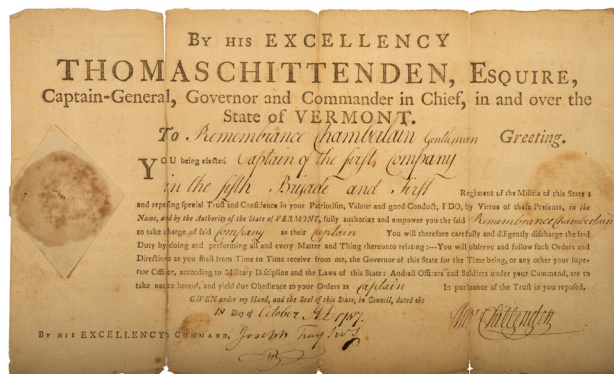 BY HIS EXCELLENCY
THOMAS CHITTENDEN, ESQUIRE,
Captain-General, Governor and Commander in Chief, in and over the
State of VERMONT.
To Remembrance Chamberlain Gentleman Greeting.
YOU being elected Captain of the first Company
in the fifth Brigade and First Regiment of the Militia of this State:
and reposing special Trust and Confidence in your Patriotism, Valour and good Conduct, I DO, by Virtue of these Presents, in the
Name, and by the Authority of the State of VERMONT, fully authorize and empower you the said Remembrance Chamberlain
to take charge of said Company as their Captain You will therefore carefully and diligently discharge the said
Duty by doing and performing all and every Matter and Thing thereunto relating:---You will observe and follow such Orders and
Directions as you shall from Time to Time receive from me, the Governor of this State for the Time being, or any other your Supe-
rior Officer, according to Military Discipline and the Laws of this State: And all Officers and Soldiers under your Command, are to
take notice hereof, and yield due Obedience to your Orders as Captain In pursuance of the Trust in you reposed.
GIVEN under my Hand, and the Seal of this State, in Council, dated the
18 Day of October AD 1787.
Thos Chittenden
BY HIS EXCELLENCY'S COMMAND, Joseph